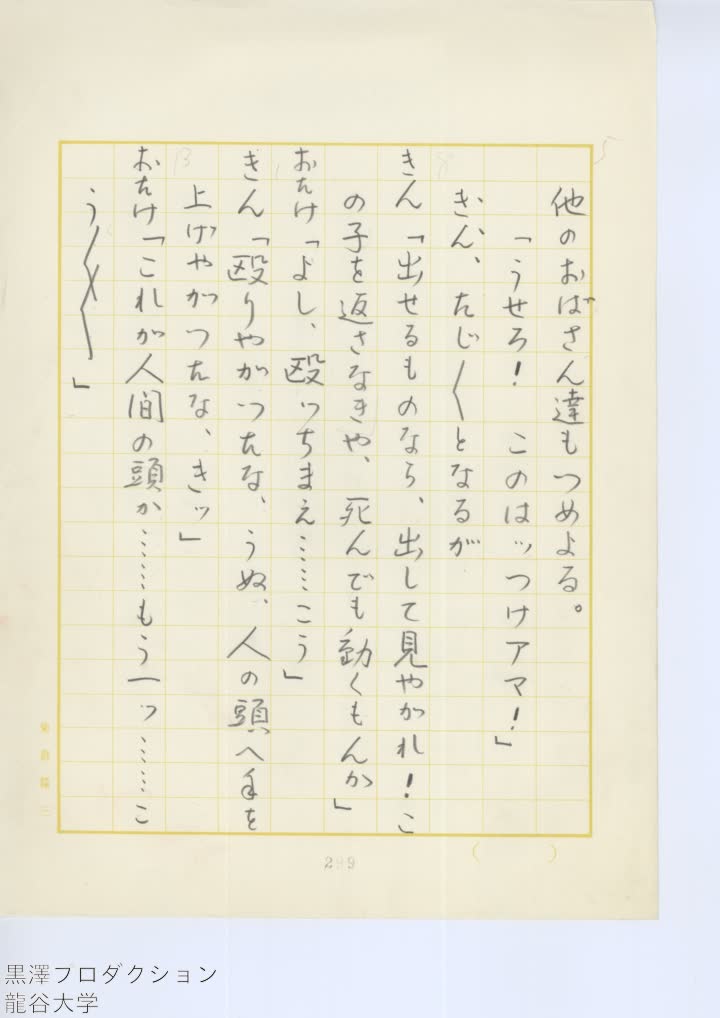 他のおばさん達もつめよる。
「うせろ！　このはッつけアマ！」
きん、たじ〱となるが
きん「出せるものなら、出して見やがれ！こ
の子を返さなきや、死んでも動くもんか」
おたけ「よし、殴ッちまえ……こう」
きん「殴りやがつたな、うぬ、人の頭へ手を
上げやがつたな、きッ」
おたけ「これが人間の頭か……もう一ッ……こ
う〱〱」
299
黒澤プロダクション
龍谷大学